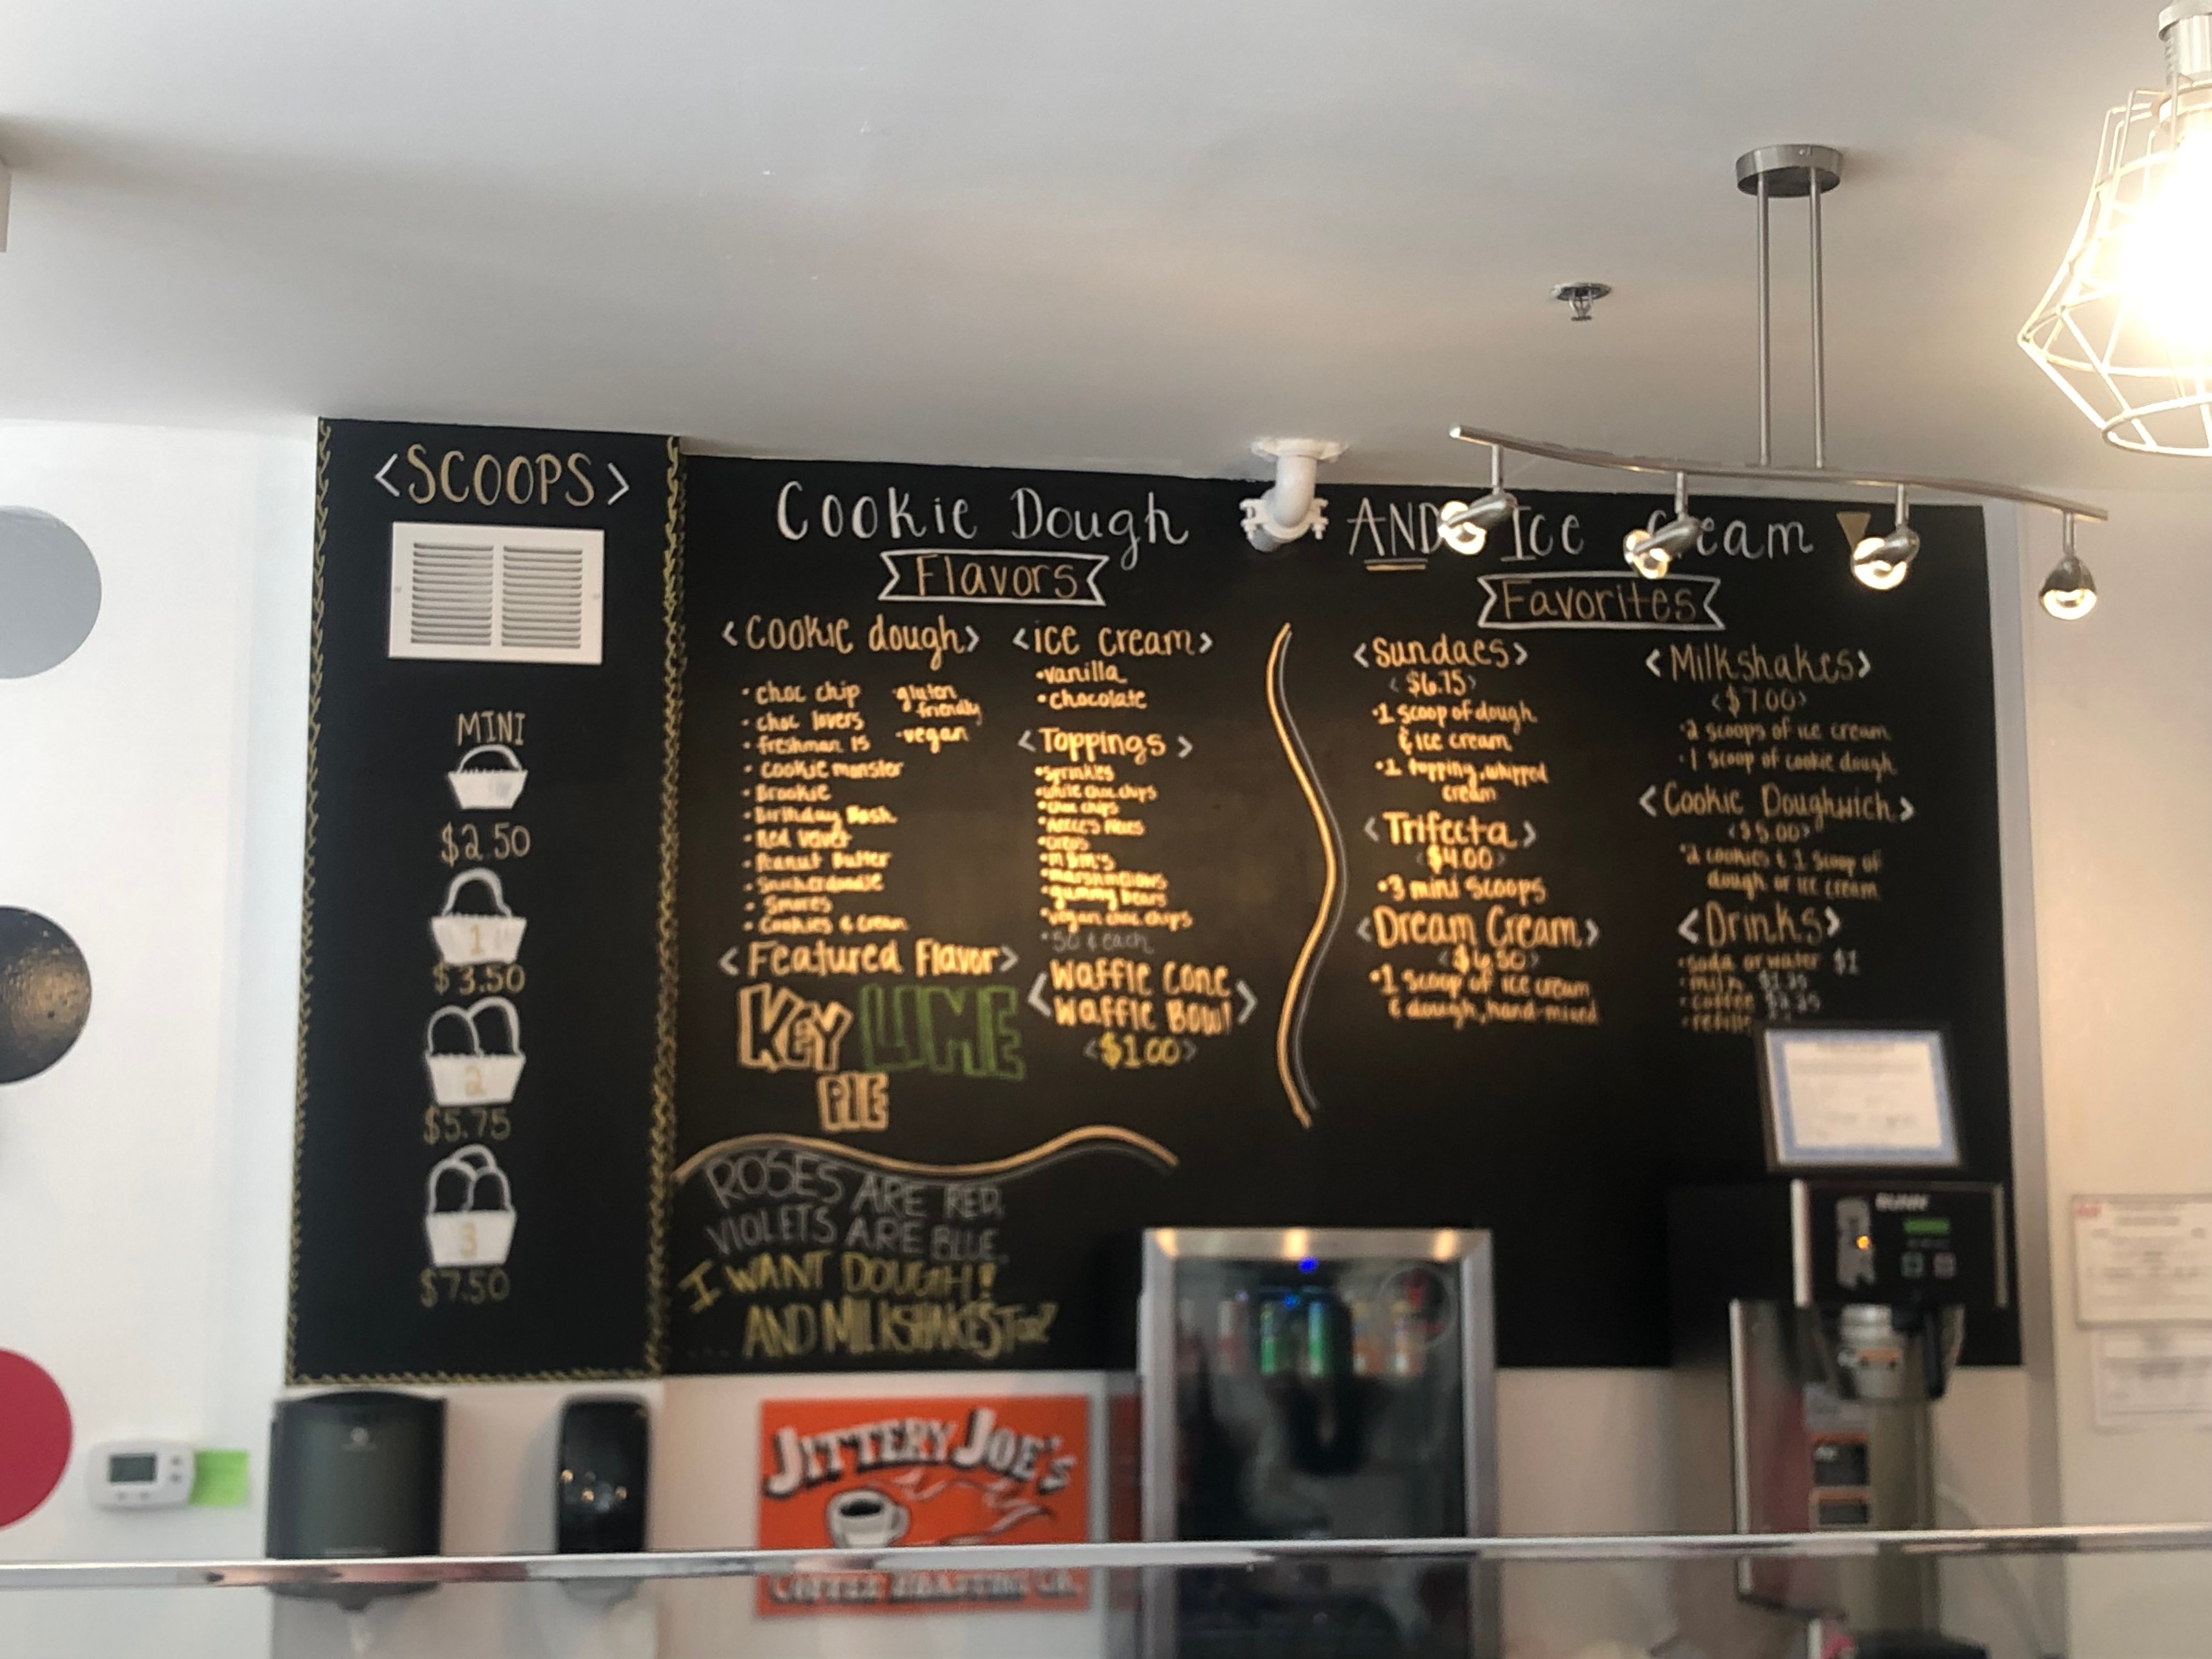 <SCOOPS>
MINI
$2.50
1
$3.50
2
$5.75
3
$7.50
Cookie Dough AND Ice Cream
Flavors
<Cookie dough>
• choc chip
• choc lovers
• freshman 15
• cookie monster
• Brookie
• Birthday Bash
• Red Velvet
• Peanut Butter
• Snickerdoodle
• Smores
• Cookies & Cream
•gluten
friendly
•vegan
<Featured Flavor>
KEY LIME
PIE
<ice cream>
•vanilla
•chocolate
<Toppings>
•sprinkles
•white choc chips
•choc chips
•Reese's Pieces
•oreos
•m&m's
•marshmellows
•gummy bears
•vegan choc chips
•50¢ each
<Waffle Cone
Waffle Bowl>
<$1.00>
Favorites
<Sundaes>
<$6.75>
•1 scoop of dough
& ice cream
•1 topping, whipped
cream
<Trifecta>
<$4.00>
•3 mini scoops
<Dream Cream>
<$6.50>
•1 scoop of ice cream
& dough, hand-mixed
<Milkshakes>
<$7.00>
•2 scoops of ice cream
•1 scoop of cookie dough
<Cookie Doughwich>
<$5.00>
•2 cookies & 1 scoop of
dough or ice cream
<Drinks>
•soda or water $1
•milk $1.25
•coffee $2.25
•refills
ROSES ARE RED,
VIOLETS ARE BLUE
I WANT DOUGH!
... AND MILKSHAKES TOO!
BUNN
JITTERY JOE'S
COFFEE ROASTING CO.